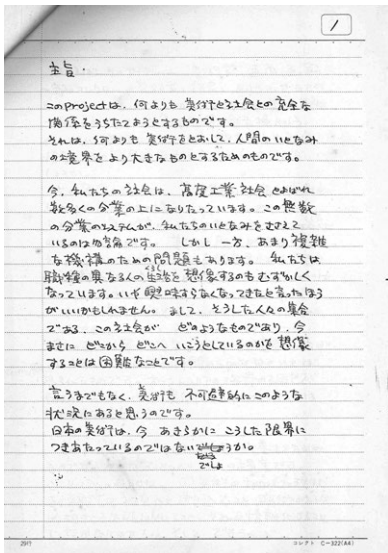 1
主旨.
このprojectは、何よりも 美術と社会との 完全な
関係をうちたてようとするものです。
それは、何よりも 美術をとおして、人間のいとなみ
の境界をより大きなものとするためのものです。
今、私たちの社会は、高度工業社会とよばれ
数多くの分業の上になりたっています。この無数
の分業のシステムが、私たちのいとなみをささえて
いるのは勿論です。 しかし 一方、あまり複雑
な機構のための問題もあります。 私たちは
職種の異なる人の生活を想像するのもむずかしく
なっています。いや 興味すらなくなってきたと言ったほう
がいいかもしれません。まして、そうした人々の集合
である、この社会が どのようなものであり、今
まさに どこから どこへ いこうとしているのかを 想像
することは困難なことです。
言うまでもなく、美術も 不可避的にこのような
状況にあると思うのです。
日本の美術は、今 あきらかに こうした 限界に
つきあたっているのではないでしょうか。
でしょ
コレクト C-322(A4)